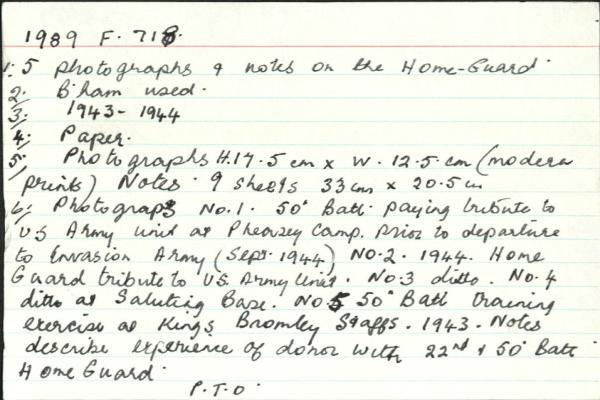 1989 F. 718.
1: 5 photographs & notes on the Home-Guard.
2: B'ham used.
3: 1943-1944
4: Paper.
5: Photographs H.17.5 cm x W. 12.5 cm (modern
prints) Notes 9 sheets 33 cm x 20.5 cm
6: Photographs No.1. 50' Batt. paying tribute to
US Army unit at Pheasey Camp. prior to departure
to Invasion Army (Sept. 1944) No.2. 1944. Home
Guard tribute to U.S. Army Unit. No.3 ditto. No.4
ditto at Saluting Base. No.5 50' Batt training
exercise at Kings Bromley Staffs. 1943. Notes
describe experience of donor with 22nd & 50' Batt
Home Guard.
P.T.O.